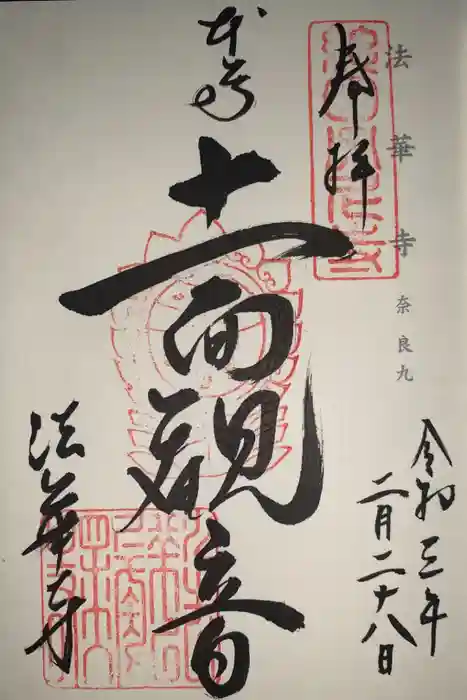 奉拝
法華寺 奈良九
令和三年
二月二十八日
本尊
十一面観音
法華寺